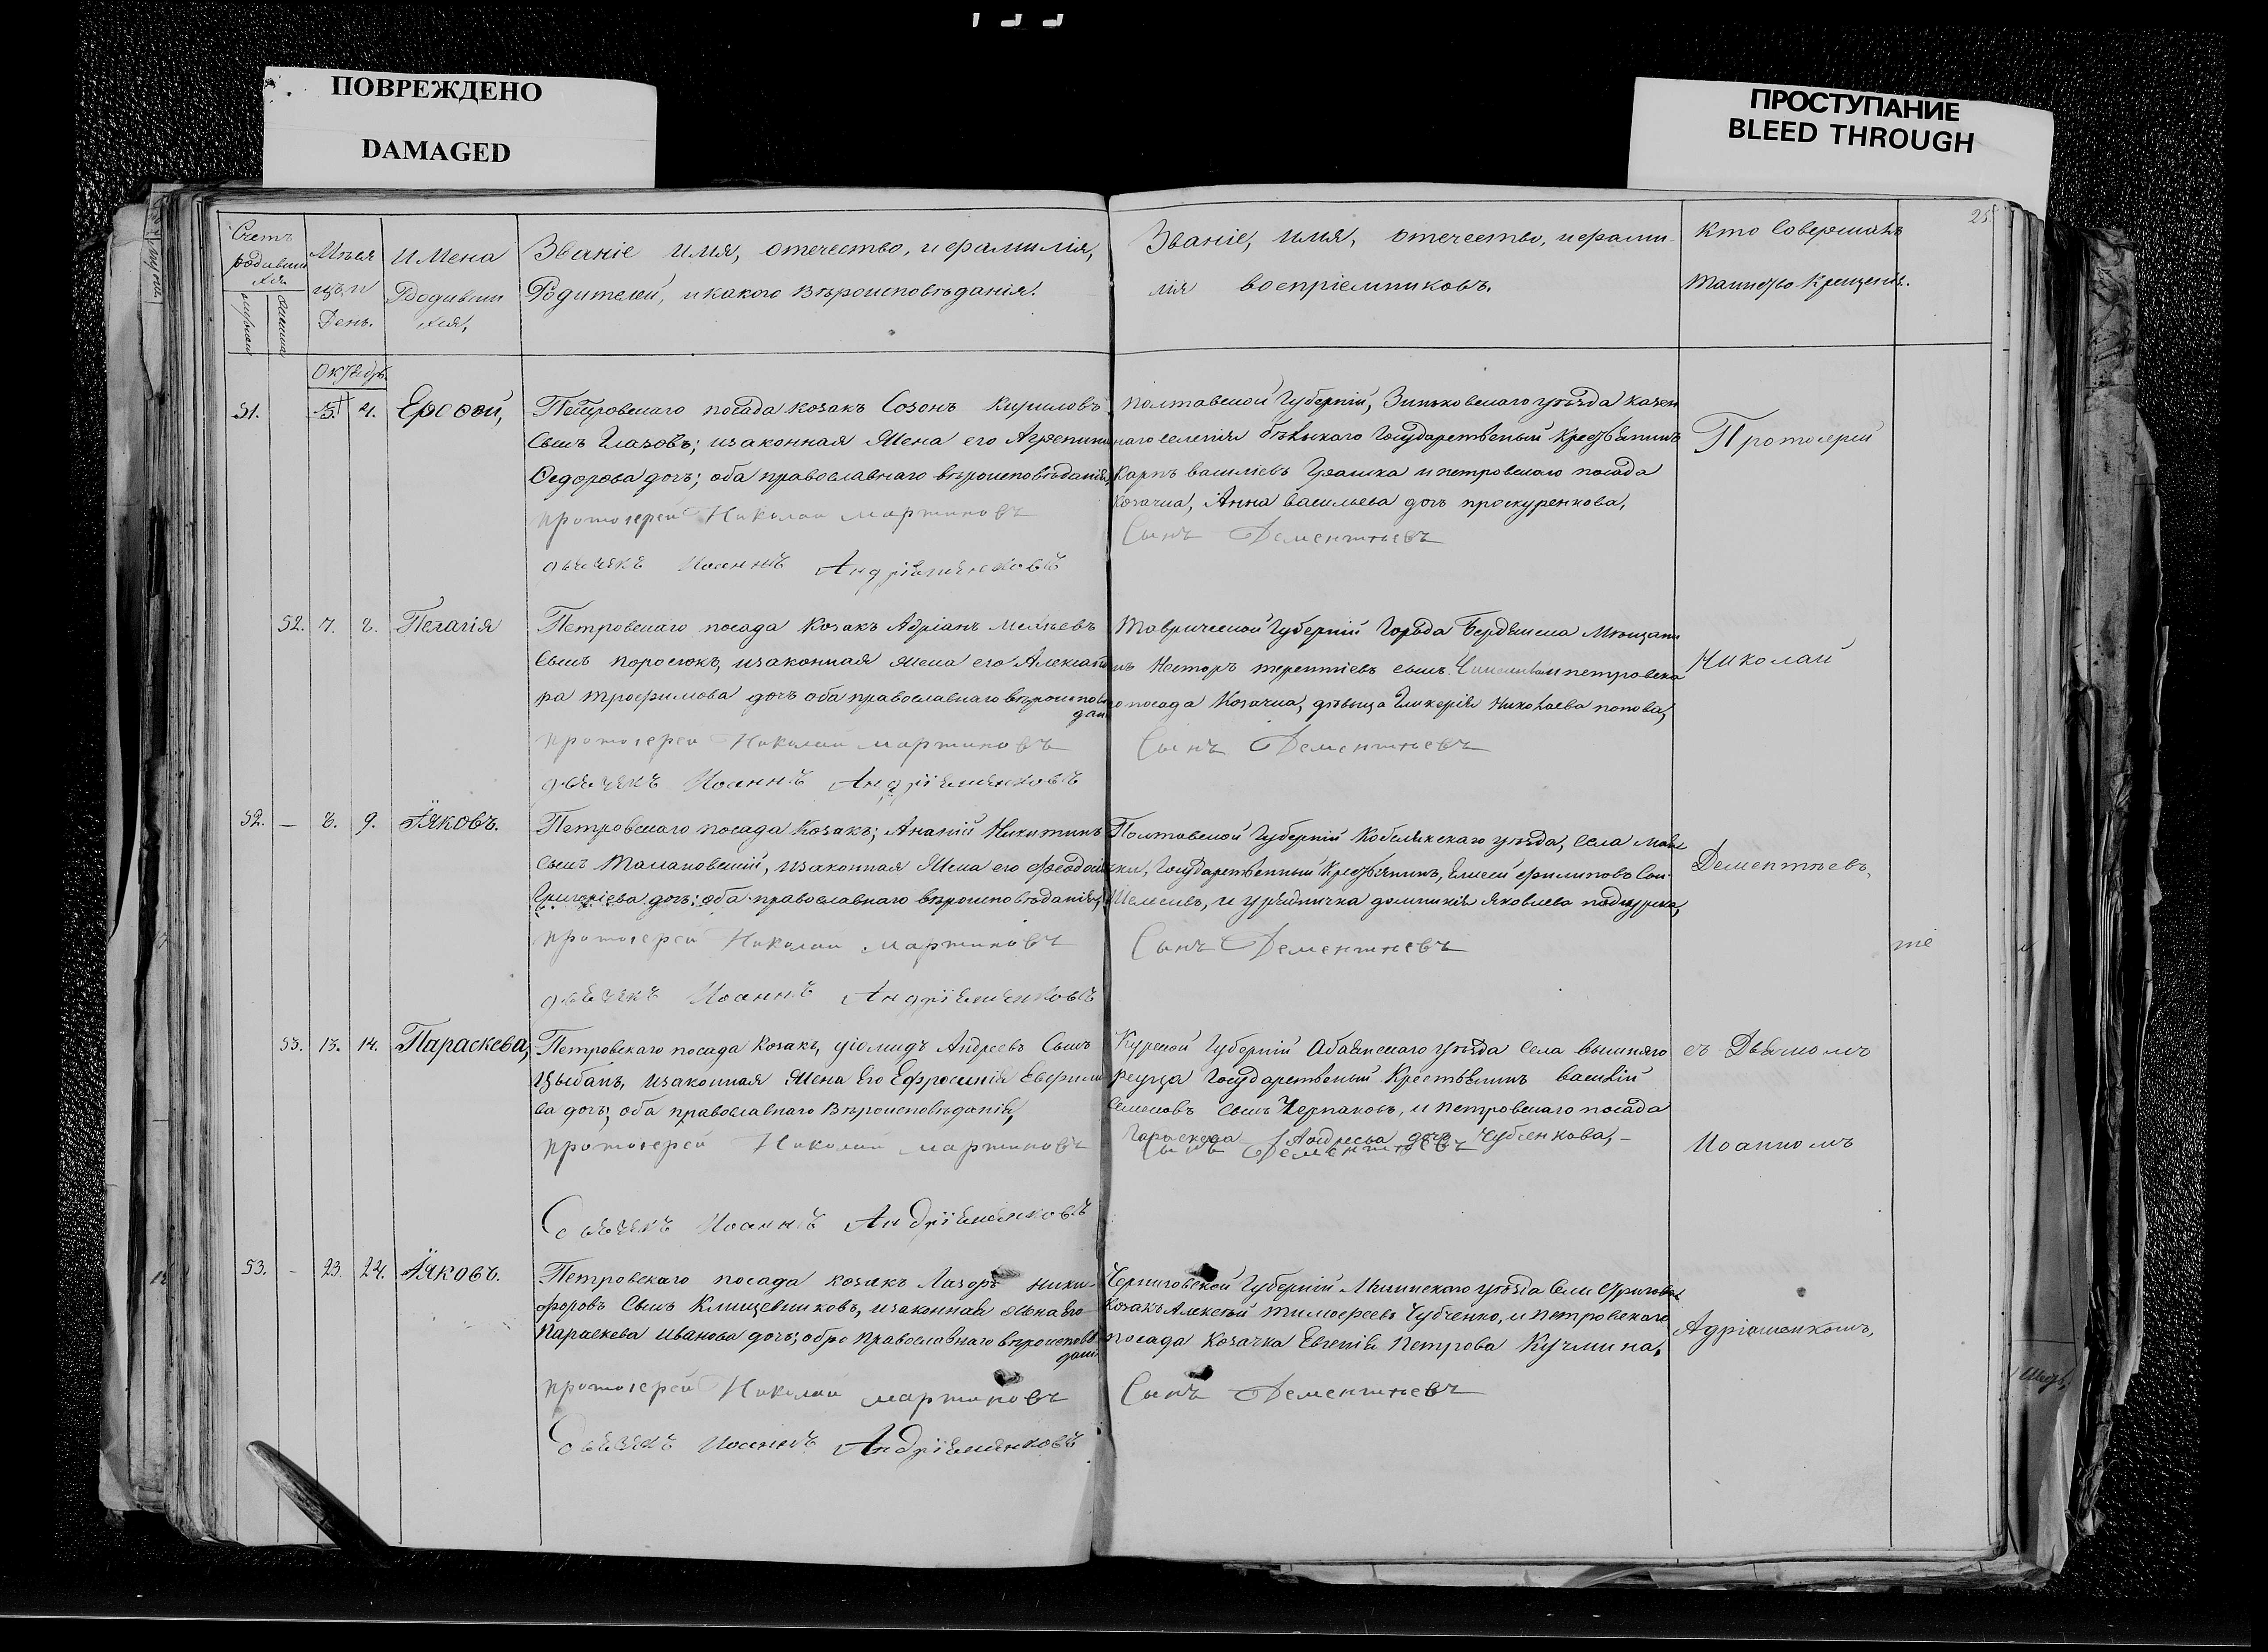 ПОВРЕЖДЕНО
DAMAGED
ПРОСТУПАНИЕ
BLEED THROUGH
25
Счетъ родивших
ся
Мѣся
цъ и
День.
Имена
Родивши
хся,
Званіе имя, отечество, и фамилія,
Родителей, и какого вѣроисповѣданія.
Званіе, имя, отечество, и фами-
лія воспріемниковъ.
Кто Совершалъ
таинство Крещенія.
Октябр.
51.
4.
Петровскаго посада козакъ Созонъ Кириловъ
сынъ Глазовъ; и законная Жена его Агрепина
Федорова дочь; оба православнаго вѣроисповѣданія,
протоіерей Николай мартиновъ
дьячекъ Иоаннъ Андріяшенковъ
Полтавской Губерніи, Зиньковскаго уѣзда казен
наго селенія Государственый Крестьянинъ
Карпъ василіевъ и петровскаго посада
Козачка, Анна васильева дочь проскуренкова,
Сынъ Дементьевъ
Протоіерей
52. 7. 8. Пелагія
Петровскаго посада Козакъ Адріанъ
сынъ поросюкъ, и законная жена его Александ
ра трофимова дочь оба православнаго вѣроисповѣ
дан
протоіерей Николай мартиновъ
дьячекъ Иоаннъ Андріяшенковъ
Таврической Губерніи Города Бердянска Мѣщани
нъ Несторъ терентіевъ сынъ и петровска
го посада Козачка, дѣвица Гликерія Николаева попова,
Сынъ Дементьевъ
Николай
52. — 8. 9. Яковъ.
Петровскаго посада Козакъ; Ананій Никитинъ
сынъ Талановскій, и законная Жена его Феодосія
Григоріева дочь; оба православнаго вѣроисповѣданія,
протоіерей Николай мартиновъ
дьячекъ Иоаннъ Андріяшенковъ
Полтавской Губерніи Кобелякскаго уѣзда, села
Государственный Крестьянинъ, Елисей филиповъ Сын
и урядничка домникія Яковлева
Сынъ Дементьевъ
Дементьевъ,
53. 13. 14. Параскева,
Петровскаго посада Козакъ, діомидъ Андреевъ Сынъ
Цыбань, и законная Жена Его Ефросинія Евфимо
ва дочь; оба православнаго Вѣроисповѣданія,
протоіерей Николай мартиновъ
Дьячекъ Иоаннъ Андріяшенковъ
Курской Губерніи Обаянскаго уѣзда Села вышняго
Реутца Государственый Крестьянинъ василій
Семеновъ сынъ Черпаковъ, и петровскаго посада
Параскева Андреева дочь Чубченкова, —
Сынъ Дементьевъ
съ Дьячкомъ
Иоанномъ
53. — 23. 24. Яковъ.
Петровскаго посада козакъ Лазоръ ники-
форовъ Сынъ Клищевниковъ, и законная жена его
Параскева Иванова дочь; обое православнаго вѣроисповѣ
дані
протоіерей Николай мартиновъ
Дьячекъ Иоаннъ Андріяшенковъ
Черниговской Губерніи Мглинскаго уѣзда
Козакъ Алексѣй тимофеевъ Чубченко, и петровскаго
посада Козачка Евгенія Петрова Кучмина.
Сынъ Дементьевъ
Адріашенкомъ,